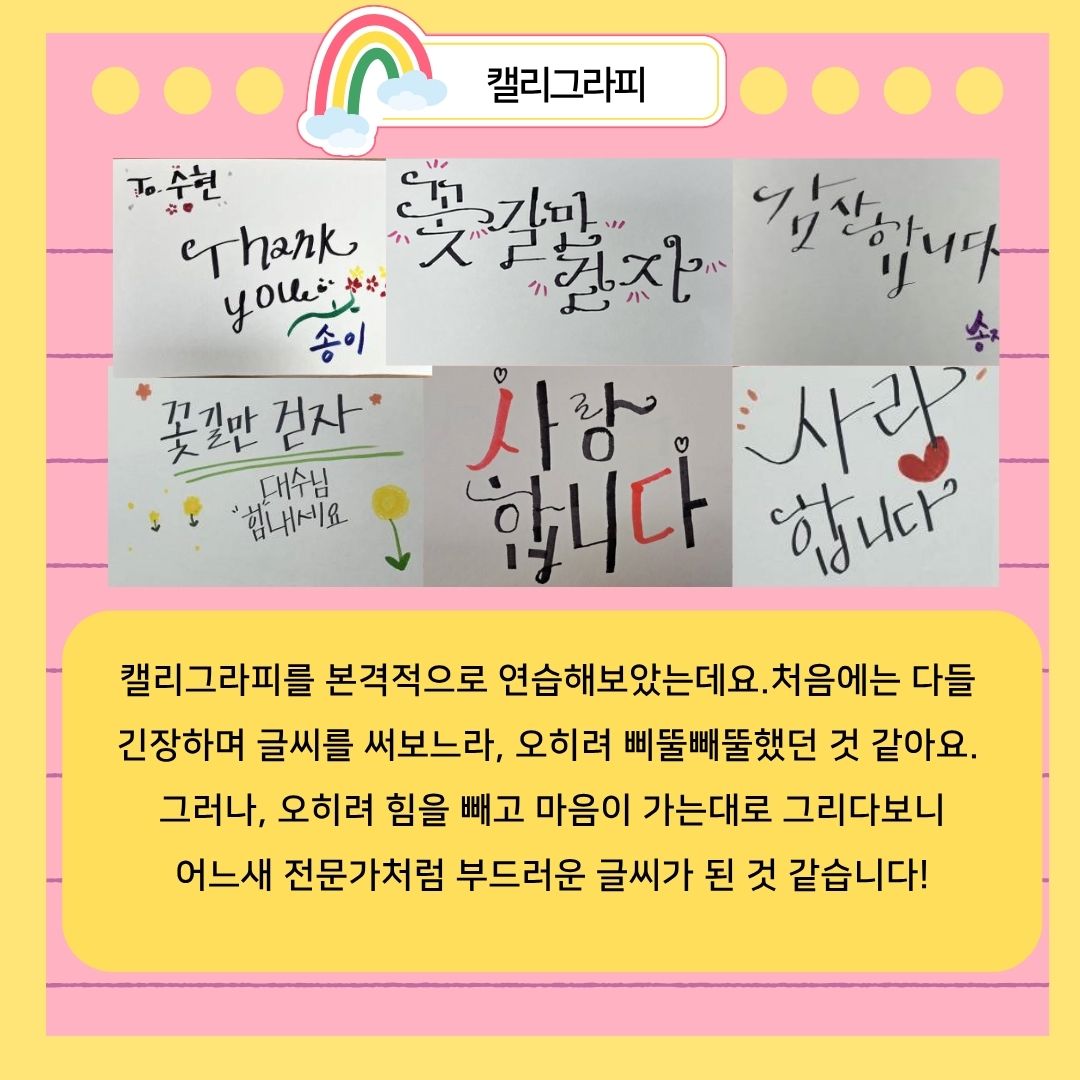 캘리그라피
To. 수현
Thank
you
송이
꽃길만
걷자
감사합니다
꽃길만 걷자
대수님
"힘내세요
사랑
합니다
사랑
합니다
캘리그라피를 본격적으로 연습해보았는데요.처음에는 다들
긴장하며 글씨를 써보느라, 오히려 삐뚤빼뚤했던 것 같아요.
그러나, 오히려 힘을 빼고 마음이 가는대로 그리다보니
어느새 전문가처럼 부드러운 글씨가 된 것 같습니다!